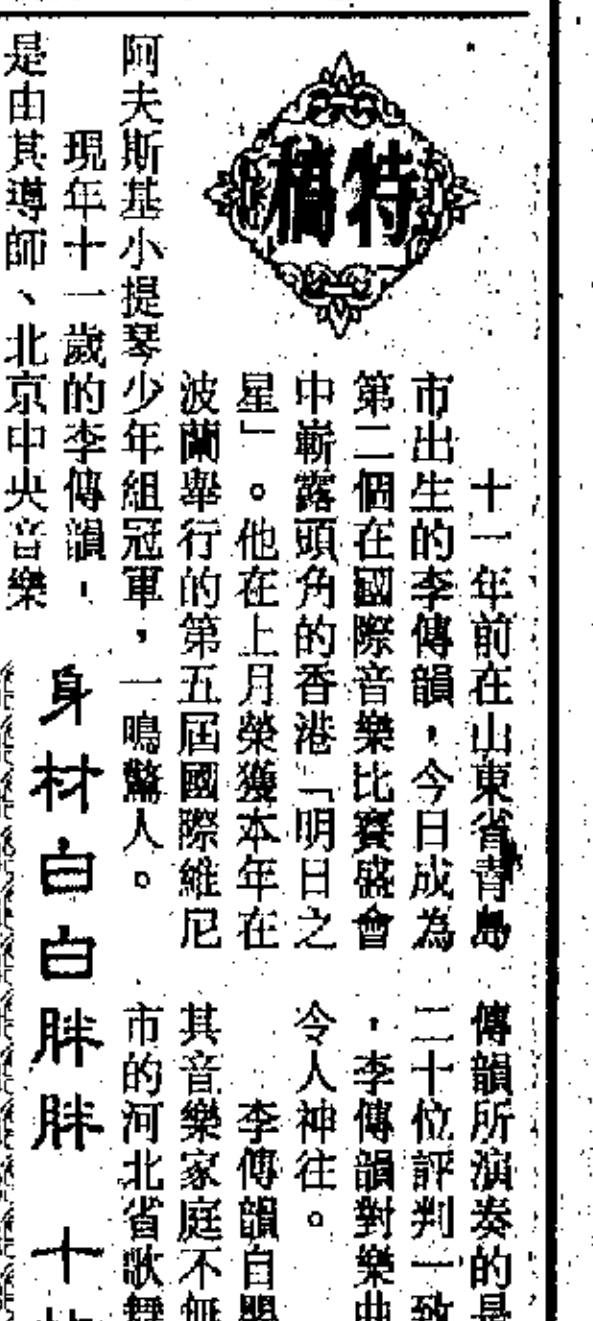 特稿
十一年前在山東省青島
市出生的李傳韻，今日成為
第二個在國際音樂比賽盛會
中嶄露頭角的香港「明日之
星」。他在上月榮獲本年在
波蘭舉行的第五屆國際維尼
阿夫斯基小提琴少年組冠軍，一鳴驚人。
現年十一歲的李傳韻，
是由其導師、北京中央音樂
傳韻所演奏的是
二十位評判一致
，李傳韻對樂曲
令人神往。
李傳韻自嬰
其音樂家庭不無
市的河北省歌舞
身材白白胖胖 十